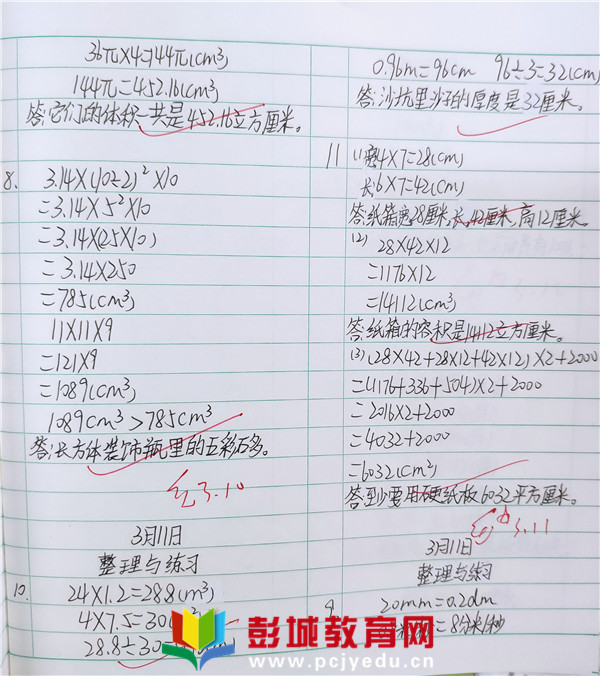 36π×4=144π(cm³)
144π=452.16(cm³)
答:它们的体积一共是452.16立方厘米。
8. 3.14×(10÷2)²×10
=3.14×5²×10
=3.14×(25×10)
=3.14×250
=785(cm³)
11×11×9
=121×9
=1089(cm³)
1089cm³>785cm³
答:长方体装饰瓶里的五彩石多。
3.10
3月11日
整理与练习
10. 24×1.2=28.8(m³)
4×7.5=30
28.8÷30
0.96m=96cm 96÷3=32(cm)
答:沙坑里沙子的厚度是32厘米。
11 (1)宽4×7=28(cm)
长:6×7=42(cm)
答:纸箱宽28厘米,长42厘米,高12厘米。
(2) 28×42×12
=1176×12
=14112(cm³)
答:纸箱的容积是14112立方厘米。
(3)(28×42+28×12+42×12)×2+2000
=(1176+336+504)×2+2000
=2016×2+2000
=4032+2000
=6032(cm²)
答:至少要用硬纸板6032平方厘米。
3.11
3月11日
整理与练习
9. 20mm=0.2dm
=8分米/秒
彭城教育网
www.pcjyedu.cn